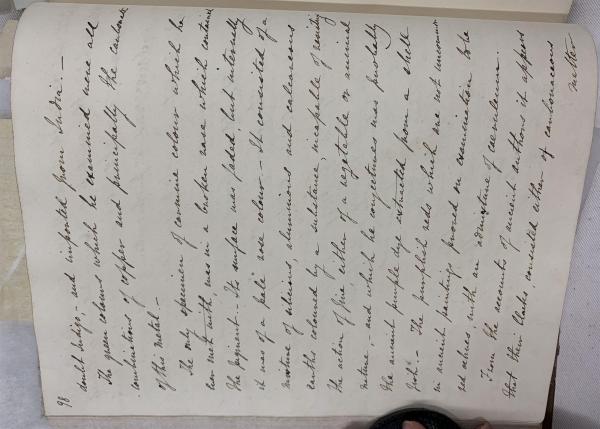 98
doubt Indigo, - and imported from India. -
The green colours which he examined were all
combinations of copper and principally the carbonate
of this metal. -
The only specimen of carmine colour which he
had met with, was in a broken vase which contained
the pigment. Its surface was faded, but internally
it was of a pale rose colour. - It consisted of a
mixture of silicious, aluminous and calcareous
earths coloured by a substance, incapable of resisting
the action of fire, either of a vegetable or animal
nature, - and which he conjectures was probably
the ancient purple dye extracted from a shell
fish. - The purplish reds which are not uncommon
in ancient paintings proved on examination to be
red ochres, with an admixture of caeruleum.
From the accounts of ancient authors it appears
that their blacks, consisted either of carbonaceous
matter